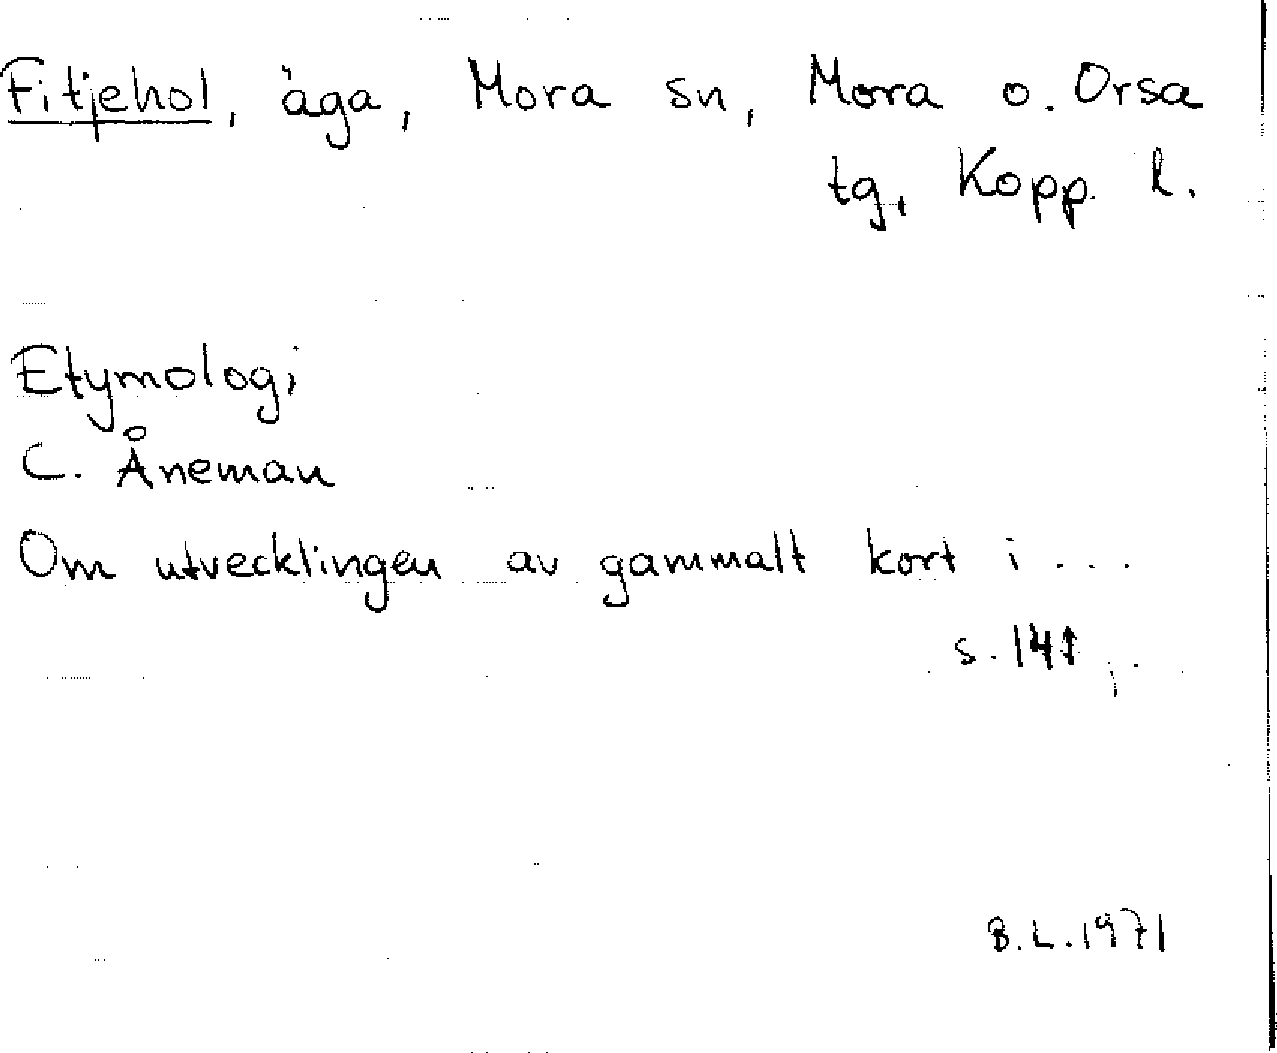 Fitjehol, äga, Mora sn, Mora o. Orsa
tg, Kopp. l.
Etymologi
C. Åneman
Om utvecklingen av gammalt kort i ...
s. 141
B.L. 1971